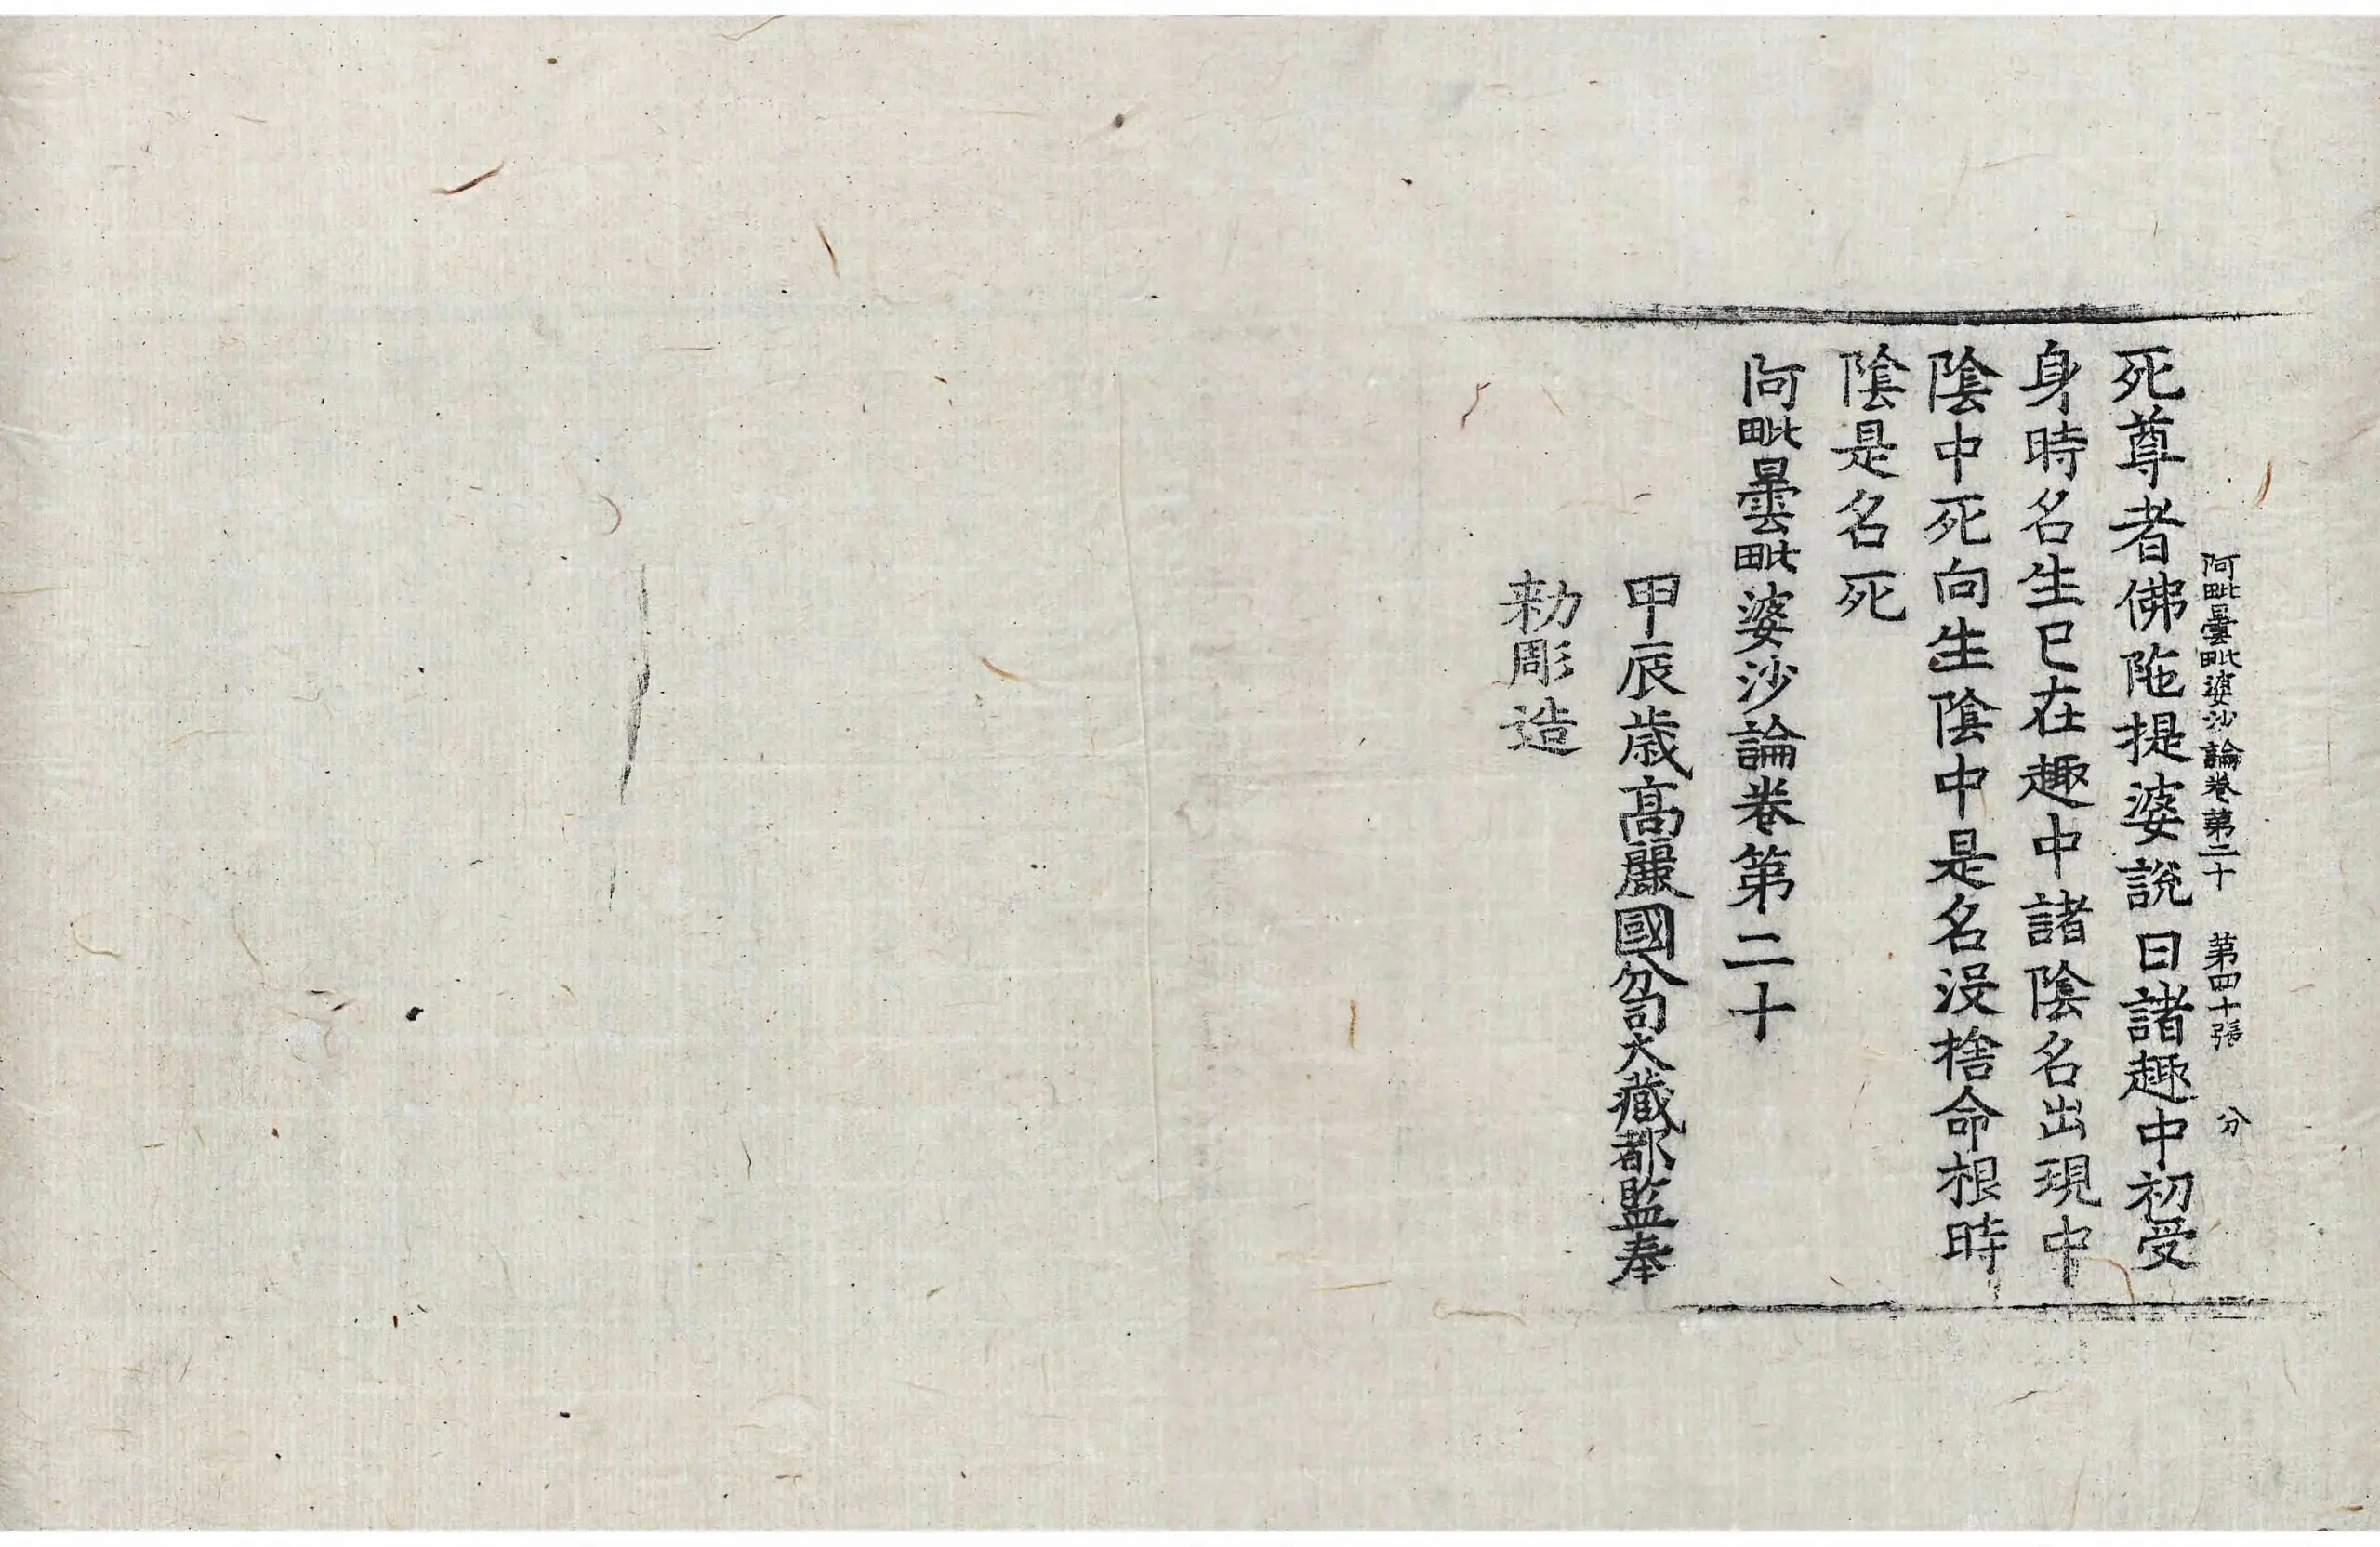 阿毗曇毗婆沙論卷第二十　第四十張　分
死尊者佛陁提婆說曰諸趣中初受
身時名生已在趣中諸陰名出現中
陰中死向生陰中是名沒捨命根時
陰是名死
阿毗曇毗婆沙論卷第二十
甲辰歲高麗國分司大藏都監奉
勑彫造